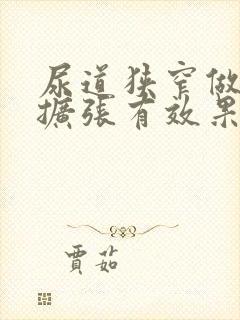 尿道狹窄做
擴張有效果
賈茹